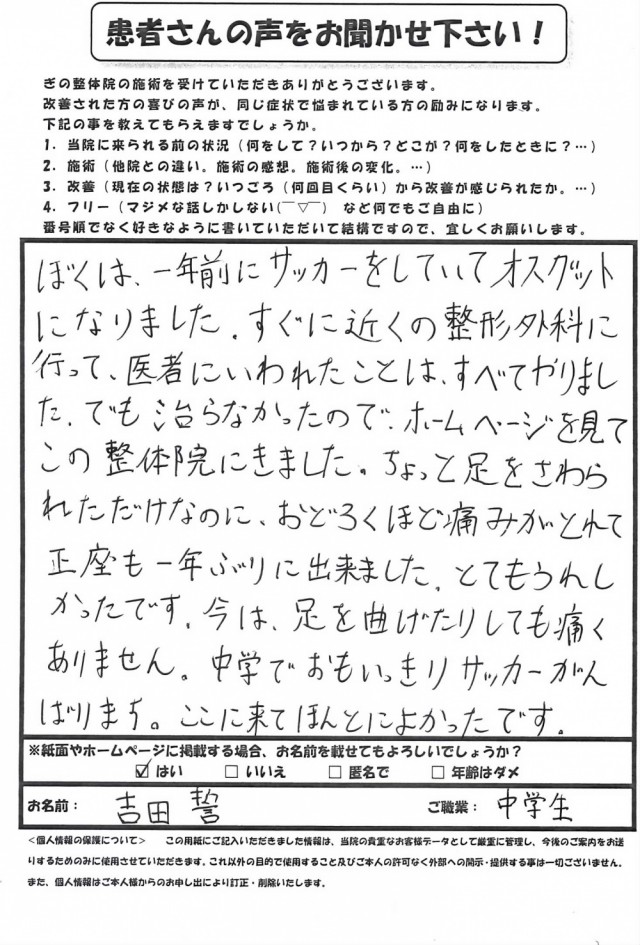 患者さんの声をお聞かせ下さい！
ぎの整体院の施術を受けていただきありがとうございます。
改善された方の喜びの声が、同じ症状で悩まれている方の励みになります。
下記の事を教えてもらえますでしょうか。
1．当院に来られる前の状況（何をして？いつから？どこが？何をしたときに？…）
2．施術（他院との違い。施術の感想。施術後の変化。…）
3．改善（現在の状態は？いつごろ（何回目くらい）から改善が感じられたか。…）
4．フリー（マジメな話しかしない(￣▽￣)　など何でもご自由に）
番号順でなく好きなように書いていただいて結構ですので、宜しくお願いします。
ぼくは、一年前にサッカーをしていてオスグット
になりました。すぐに近くの整形外科に
行って、医者にいわれたことは、すべてやりまし
た。でも治らなかったので、ホームページを見て
この整体院にきました。ちょっと足をさわら
れただけなのに、おどろくほど痛みがとれて
正座も一年ぶりに出来ました。とてもうれし
かったです。今は、足を曲げたりしても痛く
ありません。中学でおもいっきりサッカーがん
ばります。ここに来てほんとによかったです。
※紙面やホームページに掲載する場合、お名前を載せてもよろしいでしょうか？
☑ はい　□ いいえ　□ 匿名で　□ 年齢はダメ
お名前：　吉田 誓　ご職業：　中学生
＜個人情報の保護について＞　この用紙にご記入いただきました情報は、当院の貴重なお客様データとして厳重に管理し、今後のご案内をお送
りするためのみに使用させていただきます。これ以外の目的で使用すること及びご本人の許可なく外部への開示・提供する事は一切ございません。
また、個人情報はご本人様からのお申し出により訂正・削除いたします。